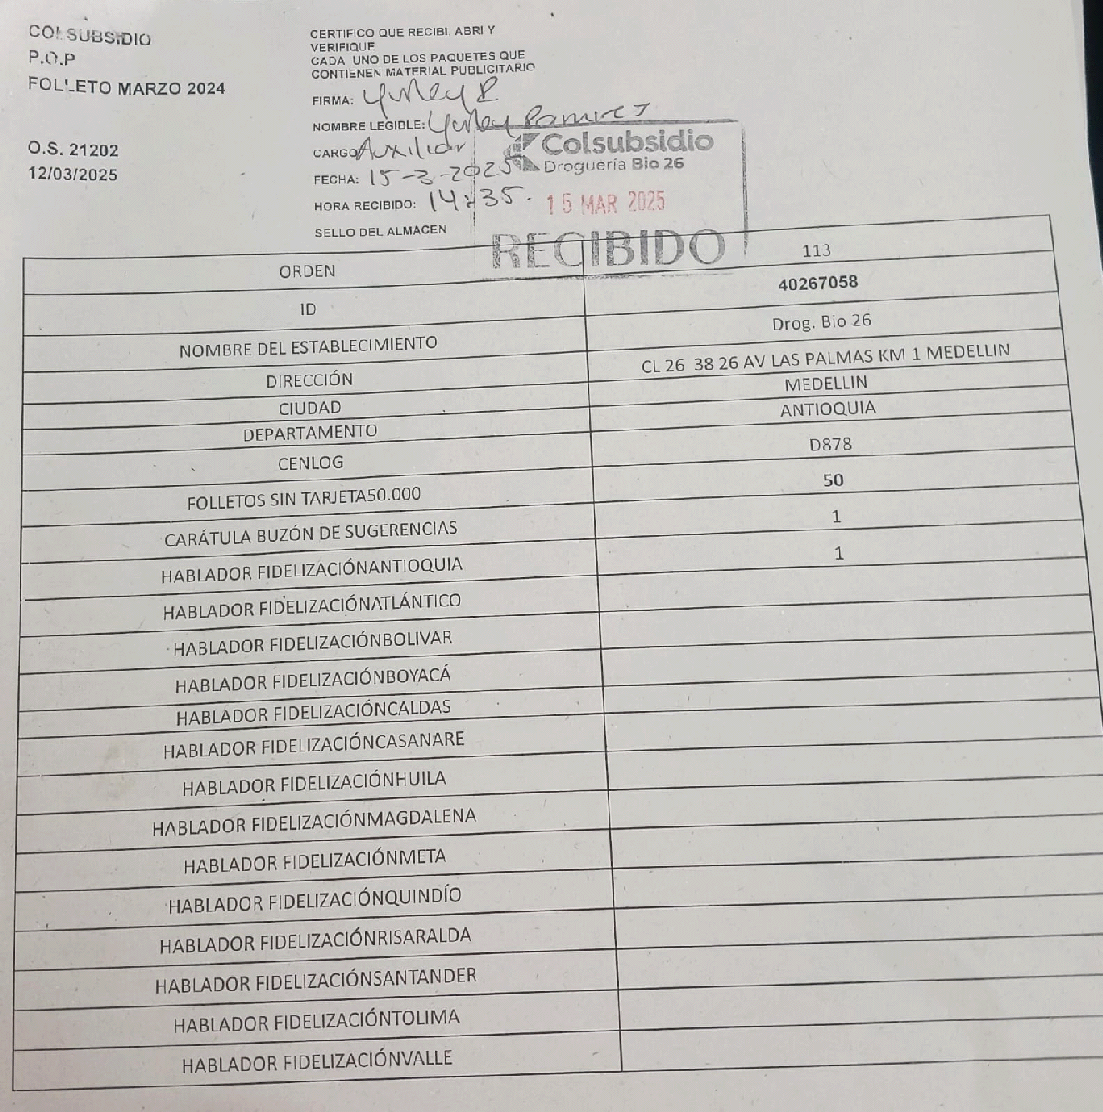 COLSUBSIDIO
P.O.P
FOLLETO MARZO 2024
O.S. 21202
12/03/2025
CERTIFICO QUE RECIBI, ABRI Y
VERIFIQUE
CADA UNO DE LOS PAQUETES QUE
CONTIENEN MATERIAL PUBLICITARIO
FIRMA: Yurley R
NOMBRE LEGIBLE: Yurley Ramirez
CARGO Auxiliar
FECHA: 15-3-2025
HORA RECIBIDO: 14:35.
SELLO DEL ALMACEN
Colsubsidio
Droguería Bio 26
15 MAR 2025
RECIBIDO
ORDEN 113
ID 40267058
NOMBRE DEL ESTABLECIMIENTO Drog. Bio 26
DIRECCIÓN CL 26 38 26 AV LAS PALMAS KM 1 MEDELLIN
CIUDAD MEDELLIN
DEPARTAMENTO ANTIOQUIA
CENLOG D878
FOLLETOS SIN TARJETA50.000 50
CARÁTULA BUZÓN DE SUGERENCIAS 1
HABLADOR FIDELIZACIÓNANTIOQUIA 1
HABLADOR FIDELIZACIÓNATLÁNTICO
HABLADOR FIDELIZACIÓNBOLIVAR
HABLADOR FIDELIZACIÓNBOYACÁ
HABLADOR FIDELIZACIÓNCALDAS
HABLADOR FIDELIZACIÓNCASANARE
HABLADOR FIDELIZACIÓNHUILA
HABLADOR FIDELIZACIÓNMAGDALENA
HABLADOR FIDELIZACIÓNMETA
HABLADOR FIDELIZACIÓNQUINDÍO
HABLADOR FIDELIZACIÓNRISARALDA
HABLADOR FIDELIZACIÓNSANTANDER
HABLADOR FIDELIZACIÓNTOLIMA
HABLADOR FIDELIZACIÓNVALLE